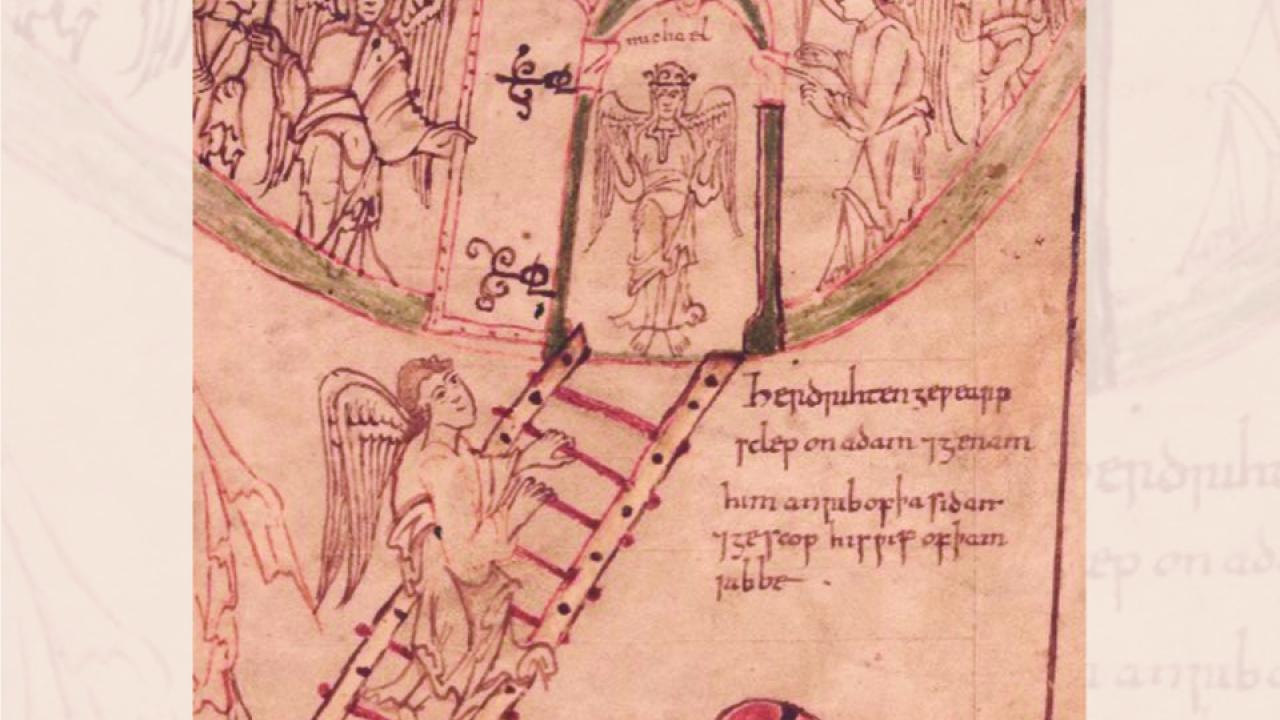 michael
Her drihten geƿearp
sclep on adam ⁊ genam
him an rib of þa sidan
⁊ gescop his ƿif of þam
ribbe .